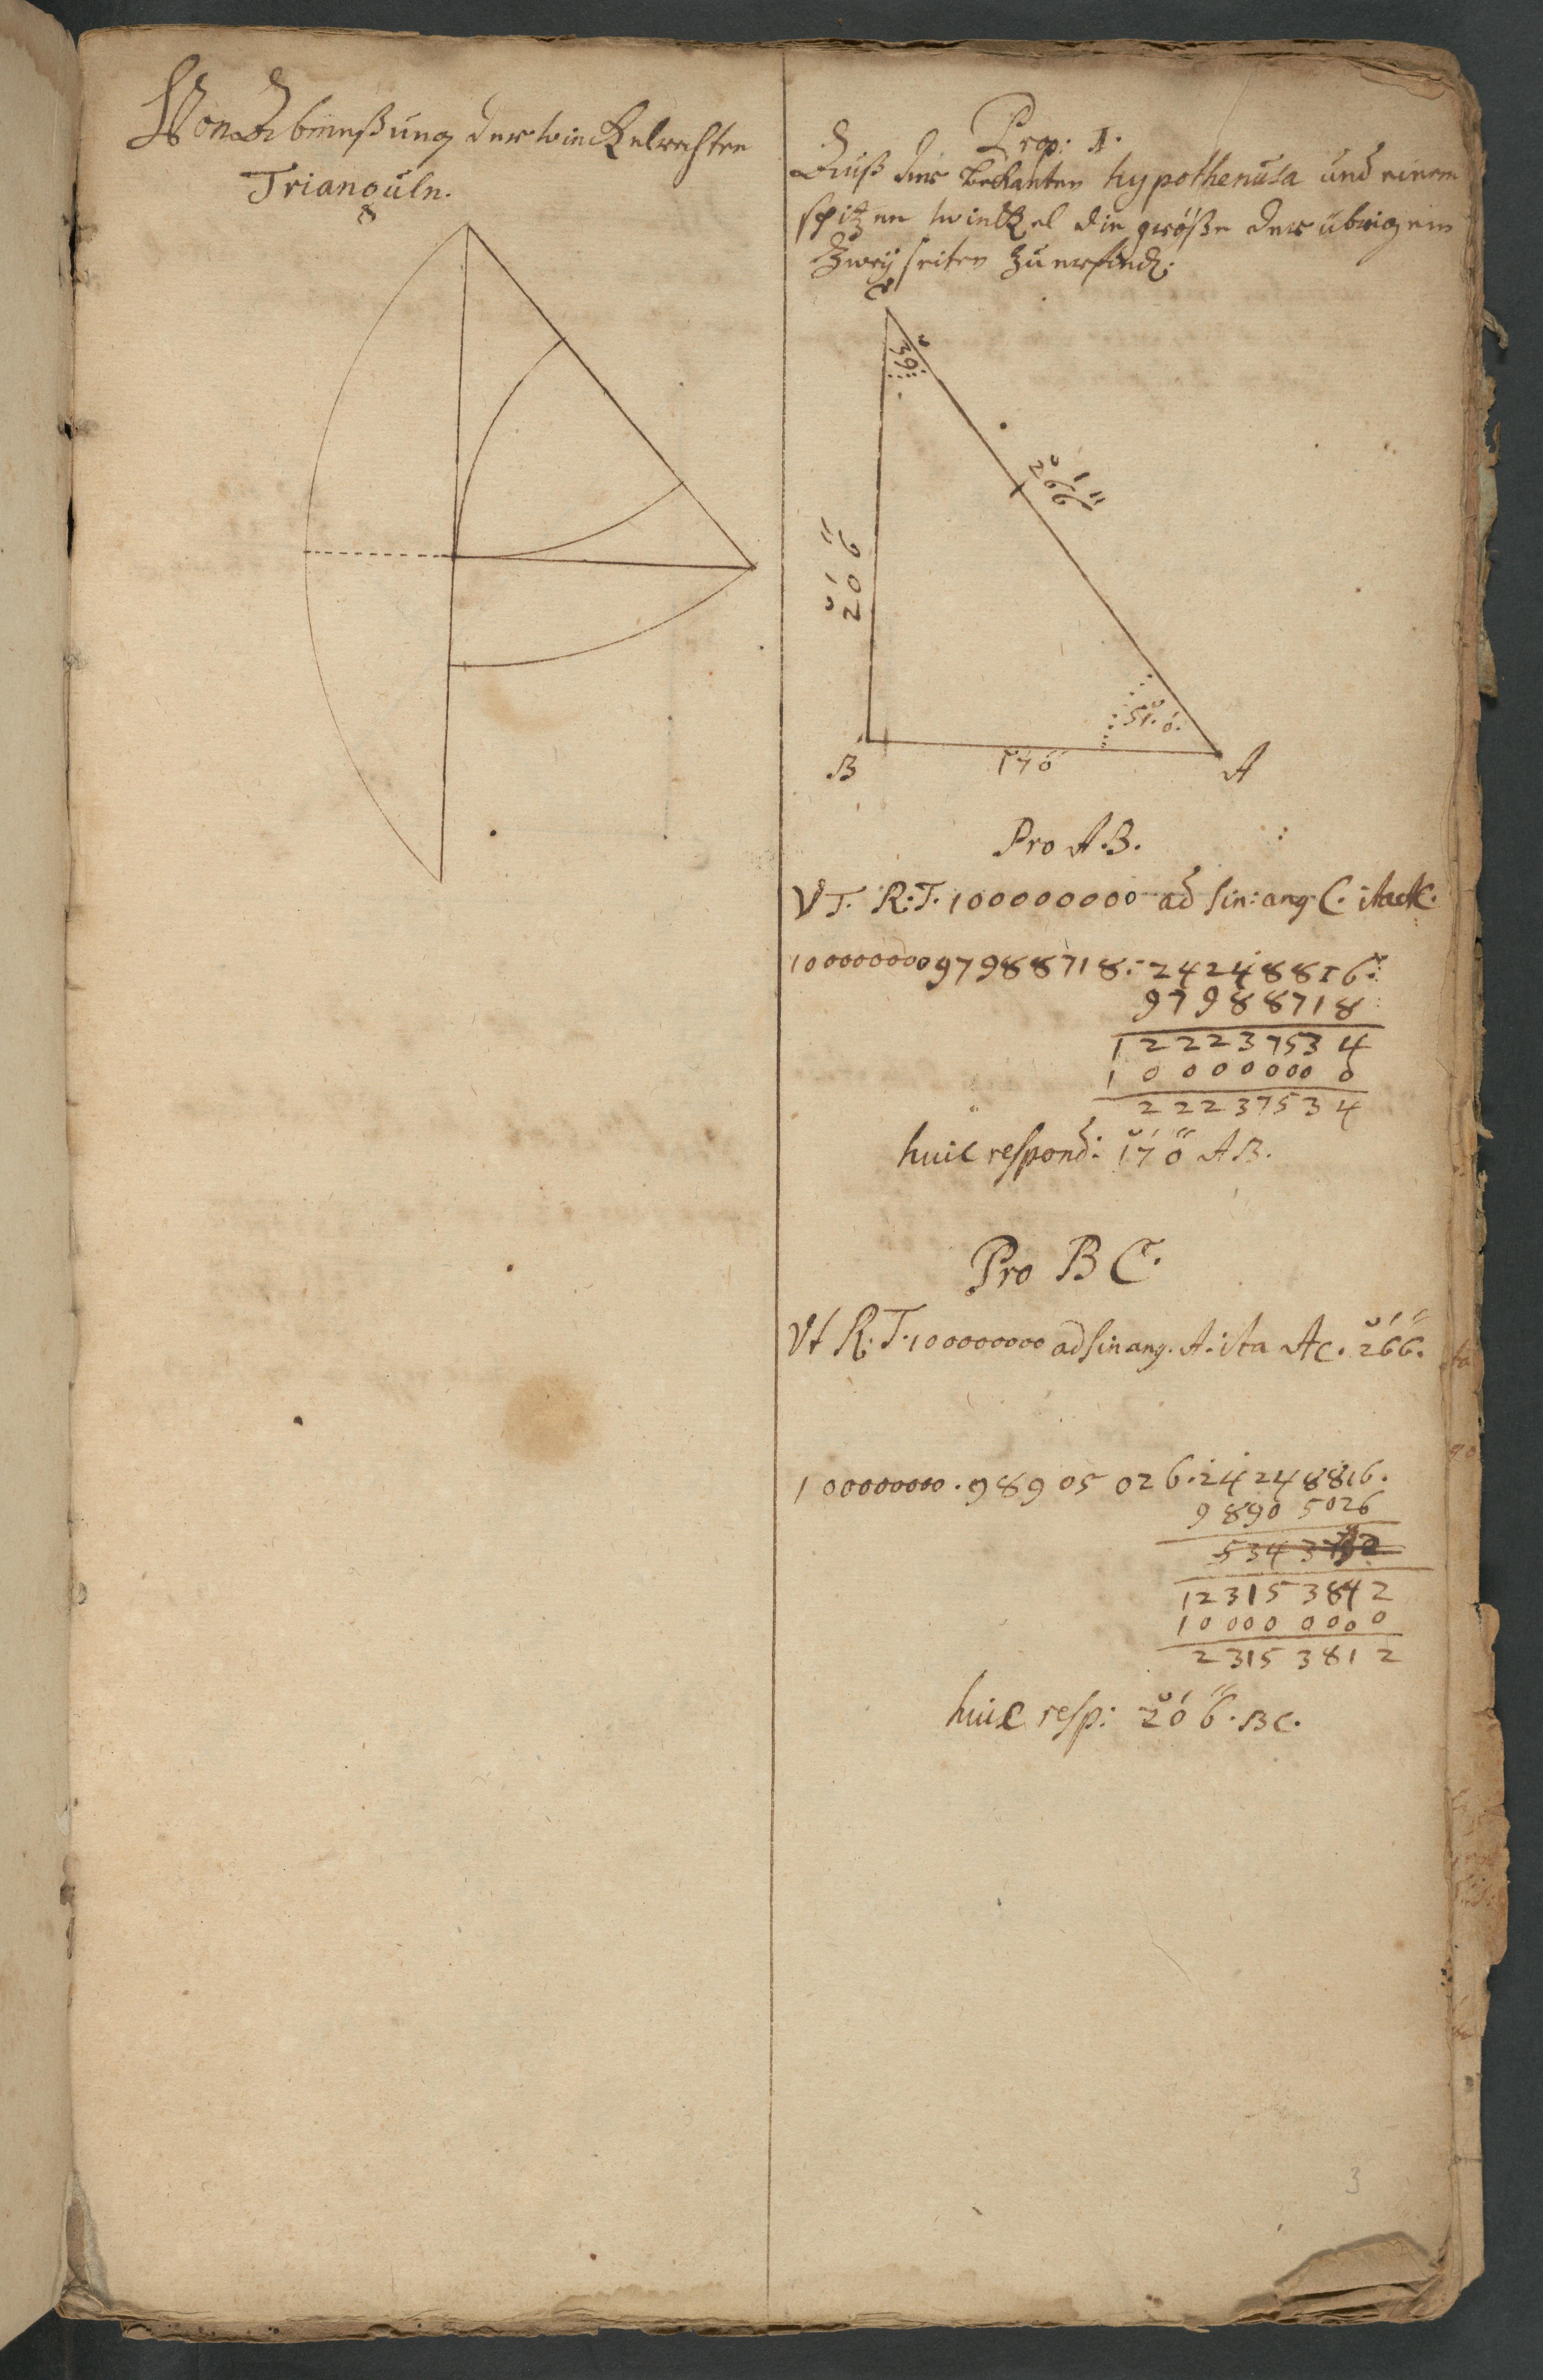 Von Abmeßung der winckelrechten
Trianguln.
Prop: 1.
Auß der bekanten hypothenusa und einem
spitzen winckel die größe der übrigen
Zwey seiten zu erfind:
C
39
266
206
51. 0.
170
B
A
Pro A.B.
VT. R:T. 100000000 ad sin: ang C. ita AC.
100000000 97988718: 24248816:
97988718
122237534
100000000
22237534
huic respond: 170 AB.
Pro B C.
Vt R: T. 100000000 ad sin ang. A: ita AC. 266.
100000000. 98905026. 24248816.
98905026
123153842
100000000
23153812
huic resp: 206. BC.
3